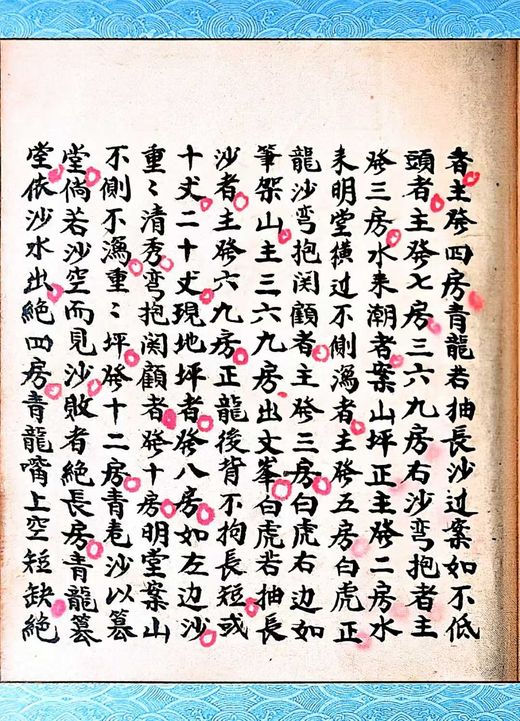 者主發四房青龍若抽長沙过案如不低
頭者主發七房三六九房右沙弯抱者主
發三房水来潮者案山坪正主發二房水
来明堂橫过不側瀉者主發五房白虎正
龍沙弯抱関顧者主發三房白虎右边如
筆架山主三六九房出文峯白虎若抽長
沙者主發六九房正龍後背不拘長短或
十丈二十丈現地坪者發八房如左边沙
重〻清秀弯抱関顧者發十房明堂案山
不側不瀉重〻坪發十二房青竜沙以墓
堂倘若沙空而見沙敗者絕長房青龍墓
堂依沙水出絕四房青龍嘴上空短缺絕